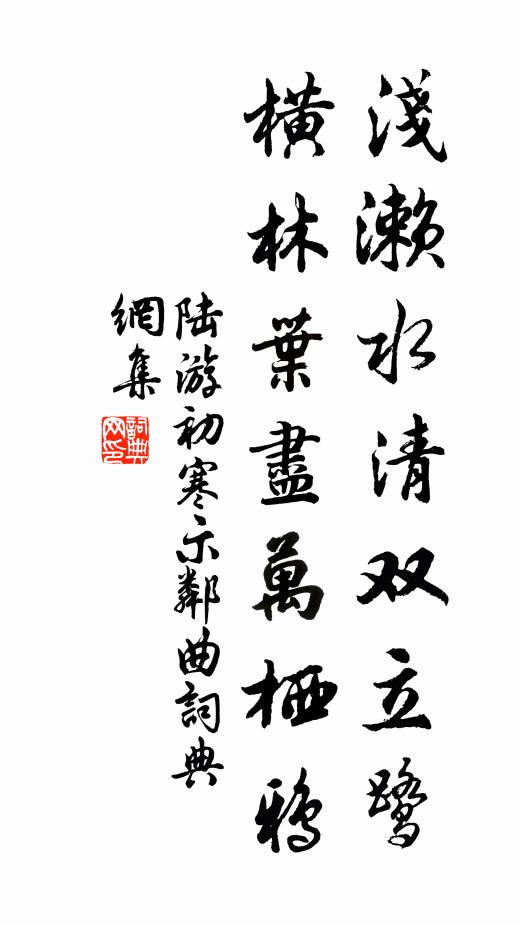 淺濑水清双立鹭
橫林葉盡萬栖鴉
陆游初寒示鄰曲詞典
網集
詞典網印